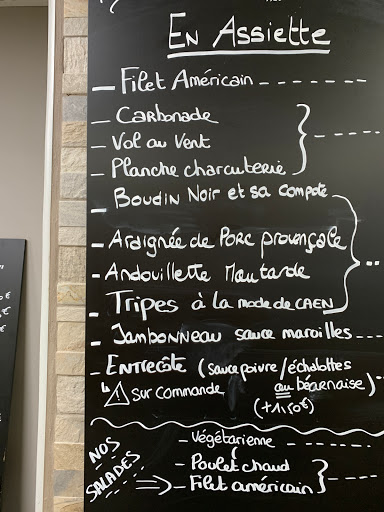 En Assiette
- Filet Américain - - - - - - - -
- Carbonade
- Vol au Vent
- Planche charcuterie
- Boudin Noir et sa compote
- Araignée de Porc provençale
- Andouillette Moutarde
- Tripes à la mode de CAEN
- Jambonneau sauce maroilles - - -
- Entrecôte (sauce poivre / échalottes
⚠ sur commande au béarnaise)
(+1,50€)
NOS SALADES
- Végétarienne - - - - - -
- Poulet chaud
- Filet américain